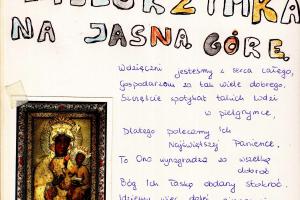 PIELGRZYMKA
NA JASNĄ GÓRĘ.
Wdzięczni jesteśmy z serca całego,
Gospodarzom za tak wiele dobrego.
Szczęście spotykać takich ludzi
w pielgrzymce,
Dlatego polecamy Ich
Najświętszej Panience.
To Ona wynagrodzi za wszelką
dobroć
Bóg Ich łaską obdarzy stokroć.
Idziemy więc dalej